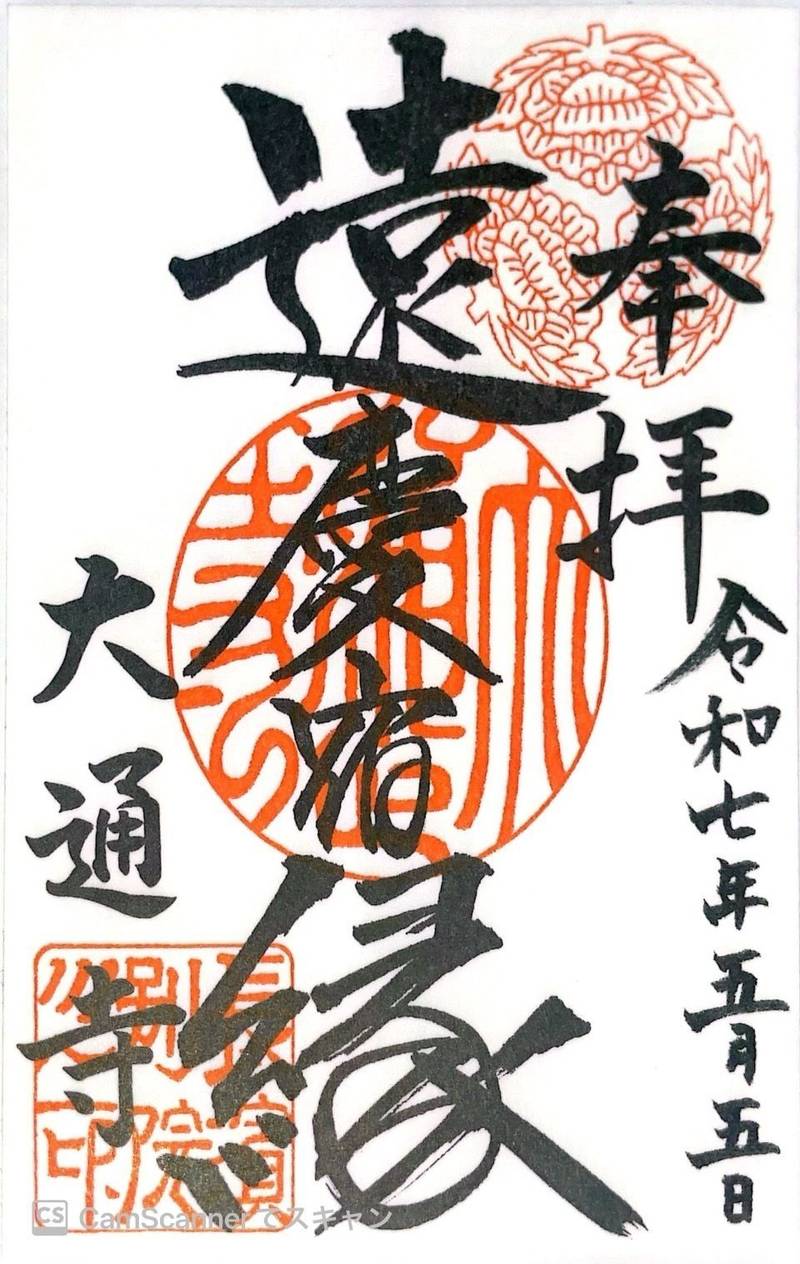 奉拝
令和七年五月五日
遠慶宿縁
大通寺
長濱別院之印
CS CamScanner でスキャン